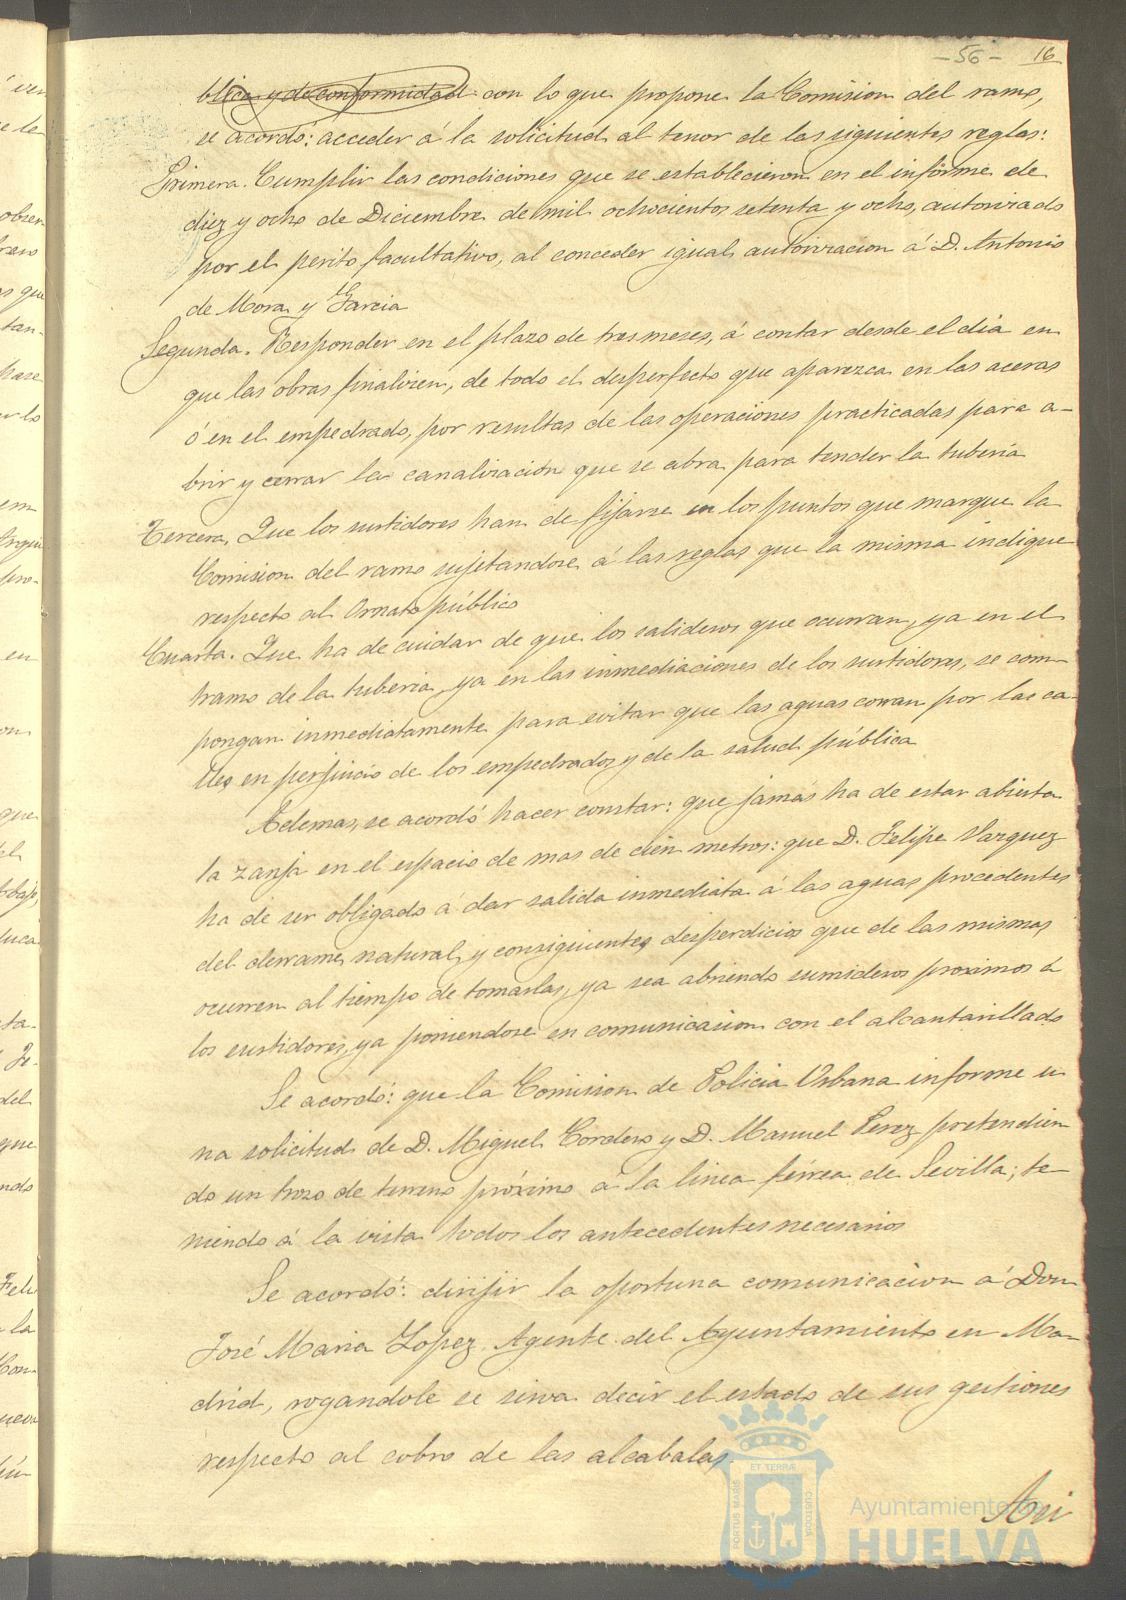 - 56 - 16
blica y de conformidad con lo que propone la Comision del ramo,
se acordó: acceder á la solicitud al tenor de las siguientes reglas:
Primera. Cumplir las condiciones que se establecieron en el informe de
diez y ocho de Diciembre de mil ochocientos setenta y ocho, autorizado
por el perito facultativo, al conceder igual autorizacion á D. Antonio
de Mora y Garcia
Segunda. Responder en el plazo de tres meses, á contar desde el dia en
que las obras finalizen, de todo el desperfecto que aparezca en las aceras
ó en el empedrado, por resultas de las operaciones practicadas para a-
brir y cerrar la canalizacion que se abra para tender la tuberia
Tercera. Que los surtidores han de fijarse en los puntos que marque la
Comision del ramo sujetandose á las reglas que la misma indique
respecto al Ornato público
Cuarta. Que ha de cuidar de que los salideros que ocurran, ya en el
tramo de la tuberia, ya en las inmediaciones de los surtidores, se com-
pongan inmediatamente para evitar que las aguas corran por las ca-
lles en perjuicio de los empedrados y de la salud pública
Ademas, se acordó hacer constar: que jamás ha de estar abierta
la zanja en el espacio de mas de cien metros: que D. Felipe Vazquez
ha de ser obligado á dar salida inmediata á las aguas procedentes
del derrame natural, y consiguientes desperdicios que de las mismas
ocurren al tiempo de tomarlas, ya sea abriendo sumideros proximos á
los surtidores, ya poniendose en comunicacion con el alcantarillado
Se acordó: que la Comision de Policia Urbana informe u
na solicitud de D. Miguel Cordero y D. Manuel Perez pretendien
do un trozo de terreno próximo á la linea férrea de Sevilla; te-
niendo á la vista todos los antecedentes necesarios
Se acordó: dirijir la oportuna comunicacion á Don
José Maria Lopez Agente del Ayuntamiento en Ma-
drid, rogandole se sirva decir el estado de sus gestiones
respecto al cobro de las alcabalas
PORTUS MARIS ET TERRÆ CUSTODIA
Ayuntamiento de
HUELVA